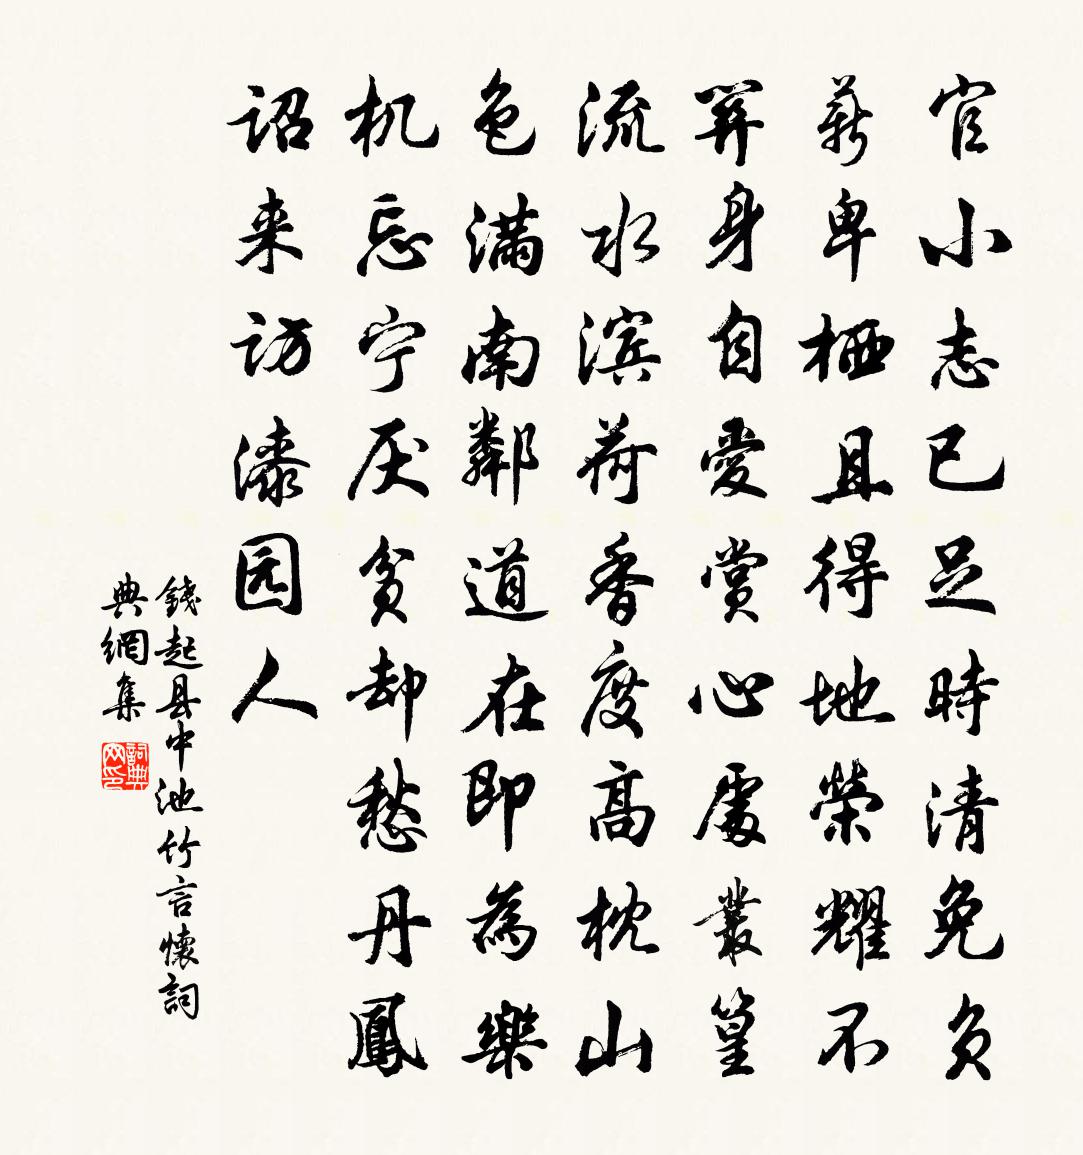 官小志已足時清免负
薪卑栖且得地榮耀不
関身自愛賞心處叢篁
流水滨荷香度高枕山
色滿南鄰道在即為樂
机忘宁厌贫却愁丹鳳
诏来访漆园人
錢起县中池竹言懷詞
典網集
詞典
网印